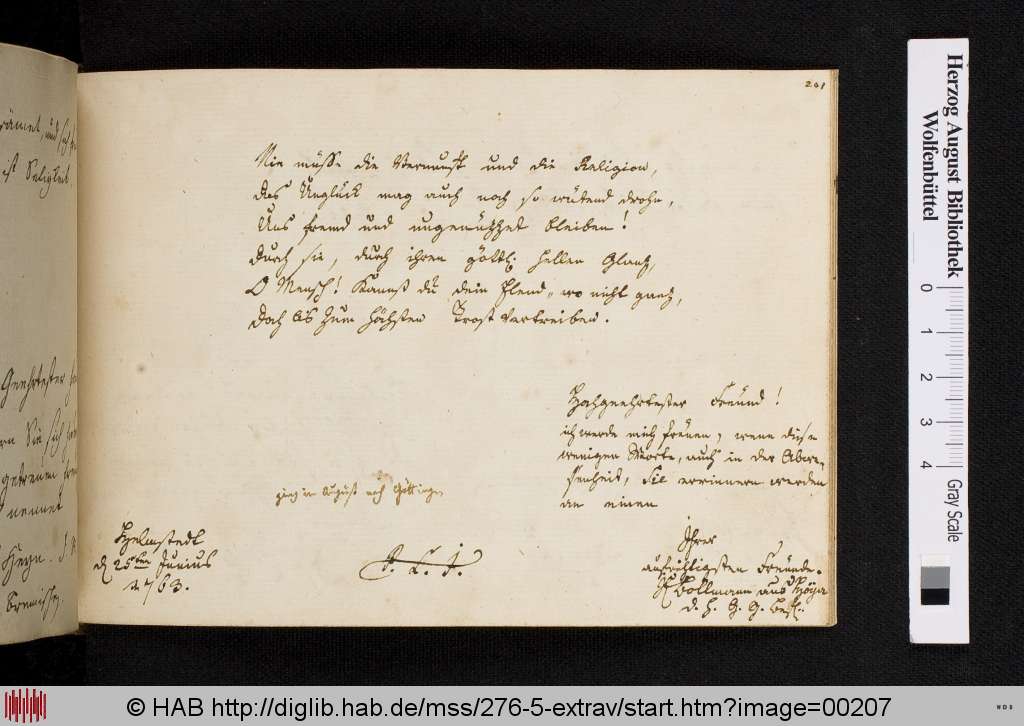 201
Nie müsse die Vernunft und die Religion,
das Unglück mag auch noch so wütend drohn,
Uns fremd und ungenützet bleiben!
durch sie, durch ihren göttl: hellen Glantz,
O Mensch! kannst du dein Elend, wo nicht gantz,
doch bis zum höchsten Trost vertreiben.
Hochgeehrtester Freund!
ich werde mich freuen, wenn diese
wenigen Worte, auch in der Abwe-
senheit, Sie errinnern werden
an einen
ging im August nach Göttingen
Helmstedt
d 25ten Junius
1763.
Ihrer
aufrichtigsten Freunde.
Bollmann aus Hoya
d. H. G. G. Befl:
ist Seligkeit
Geehrtester
Sie sich
getreuen
nennet
Herzog August Bibliothek
Wolfenbüttel
0 1 2 3 4
Gray Scale
© HAB http://diglib.hab.de/mss/276-5-extrav/start.htm?image=00207